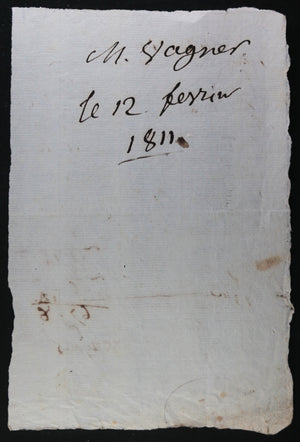 M. Vagner
le 12 fevrier
1811.